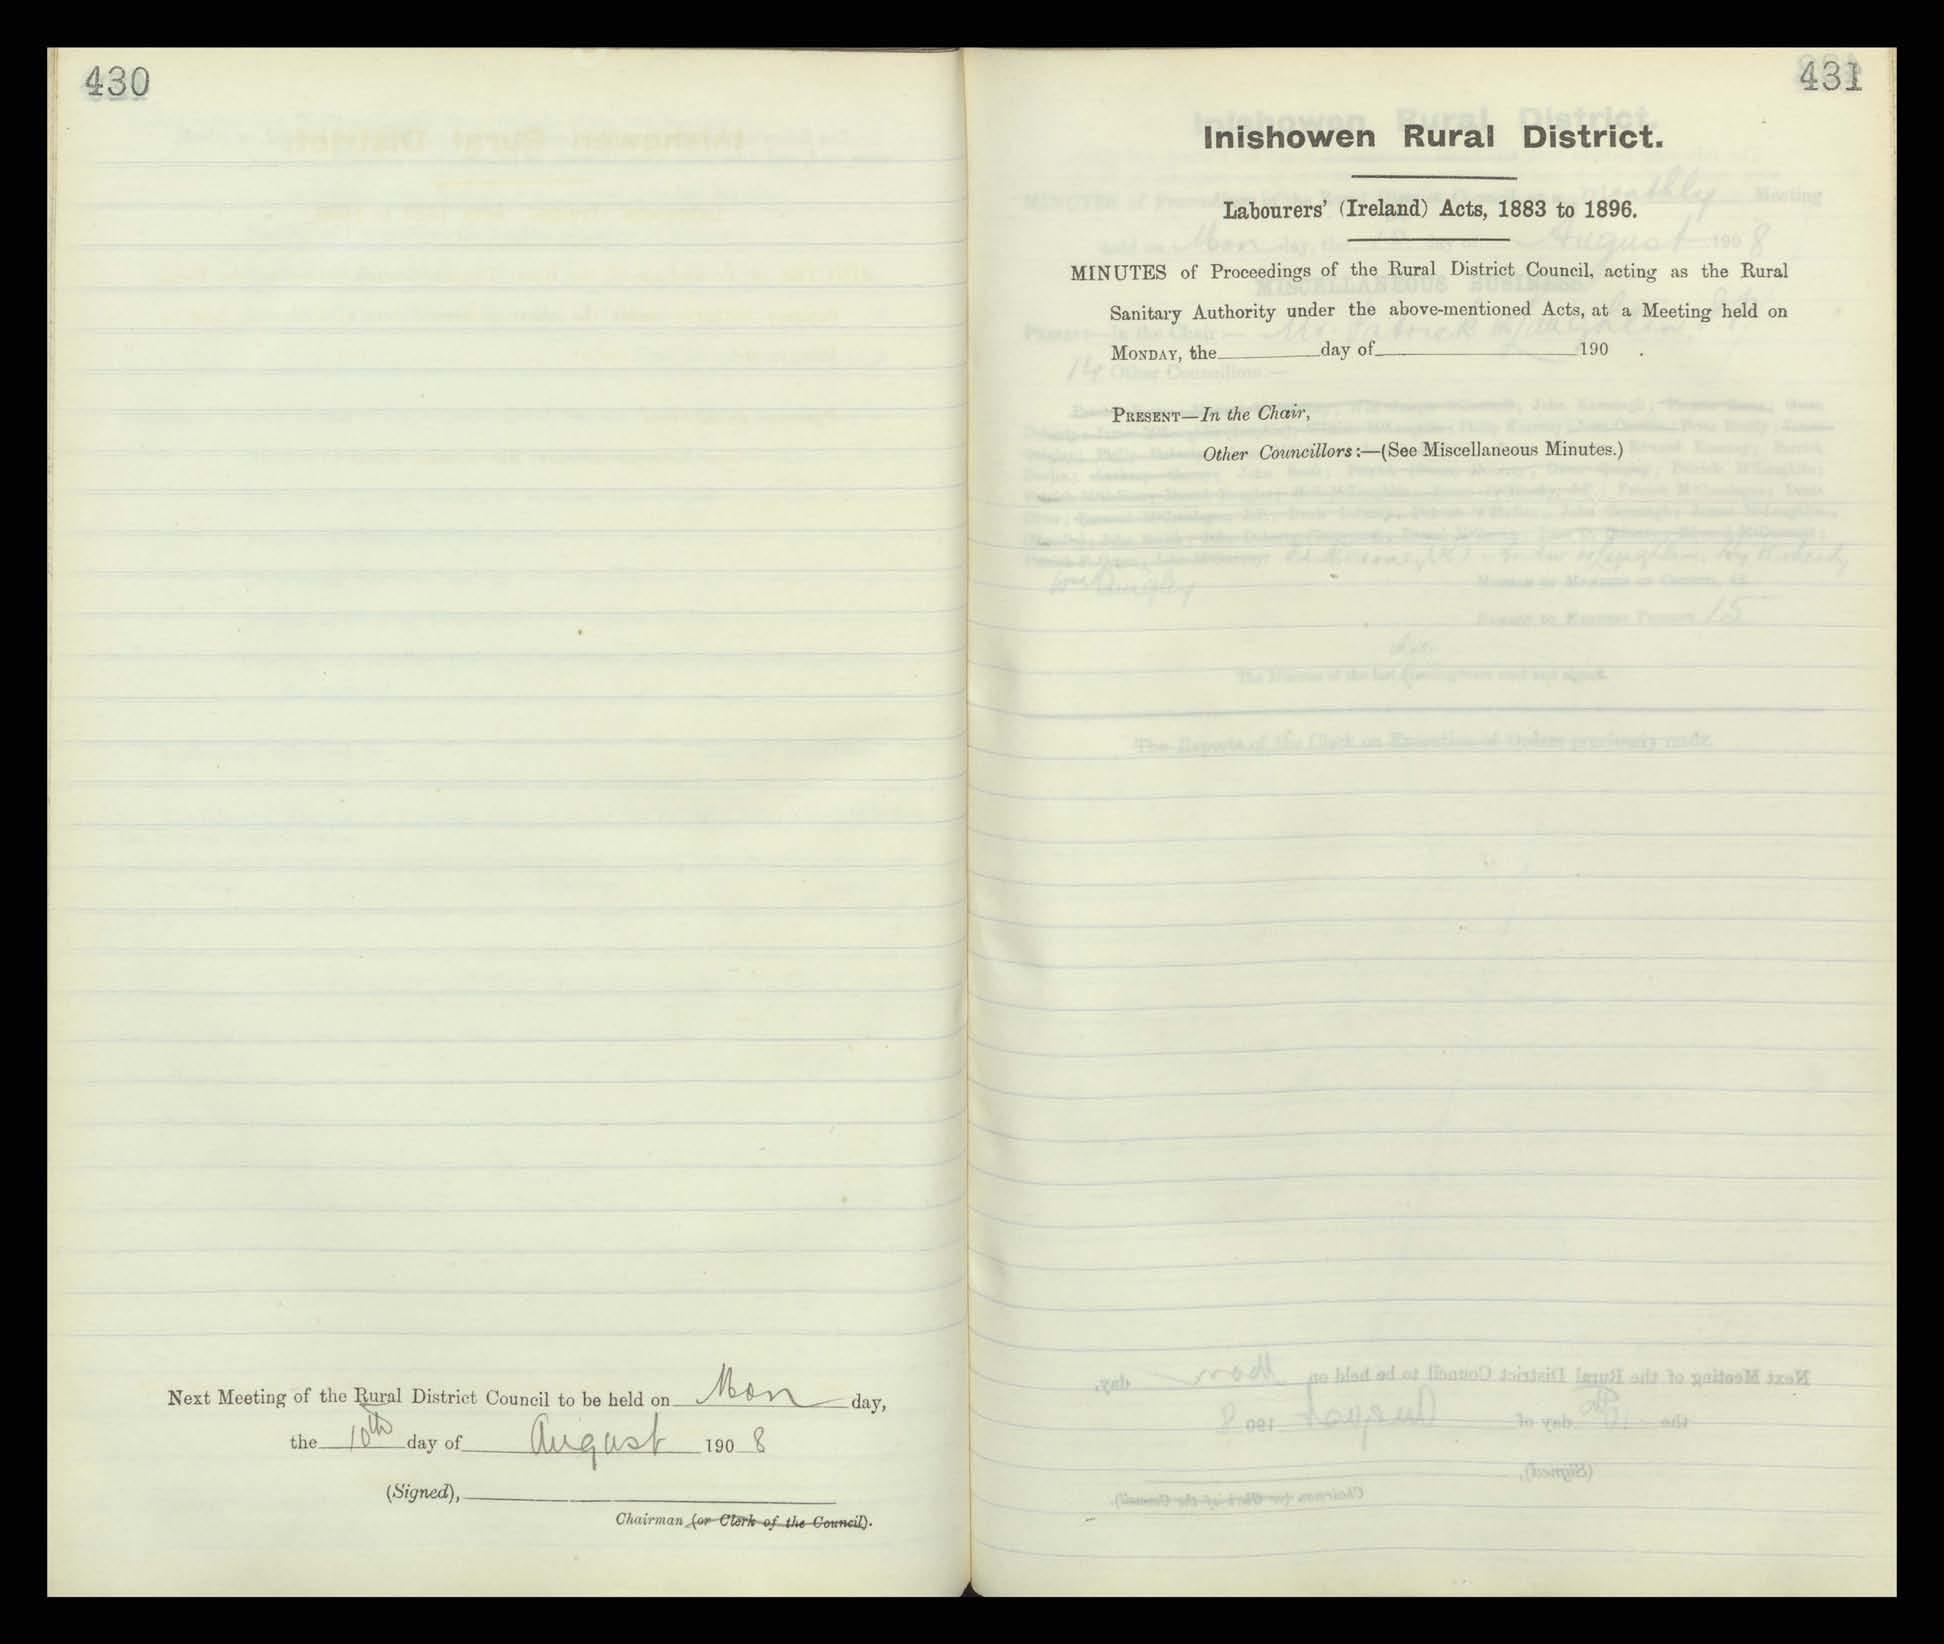 430
Next Meeting of the Rural District Council to be held on Mon day,
the 10th day of August 190 8
(Signed),
Chairman (or Clerk of the Council).
431
Inishowen Rural District.
Labourers' (Ireland) Acts, 1883 to 1896.
MINUTES of Proceedings of the Rural District Council, acting as the Rural
Sanitary Authority under the above-mentioned Acts, at a Meeting held on
MONDAY, the day of 190 .
PRESENT—In the Chair,
Other Councillors:—(See Miscellaneous Minutes.)